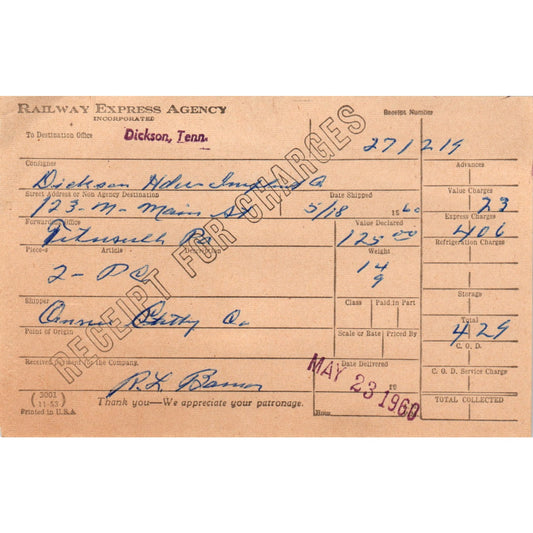 RAILWAY EXPRESS AGENCY
INCORPORATED
Receipt Number
To Destination Office
Dickson, Tenn.
271219
RECEIPT FOR CHARGES
Consignee
Advances
Dickson Hdw
Street Address or Non Agency Destination
Date Shipped
Value Charges
123 - M - Main St
5/18
1960
23
Forwarding Office
Value Declared
Express Charges
Pa
125 00
406
Refrigeration Charges
Pieces
Article
Description
Weight
2 - PC
14
9
Storage
Class
Paid in Part
Shipper
Total
Co
429
Point of Origin
Scale or Rate
Priced By
C. O. D.
Received payment for the Company.
Date Delivered
C. O. D. Service Charge
MAY 23 1960
19
R. L.
TOTAL COLLECTED
Thank you—We appreciate your patronage.
(3001
11-53)
Printed in U.S.A.